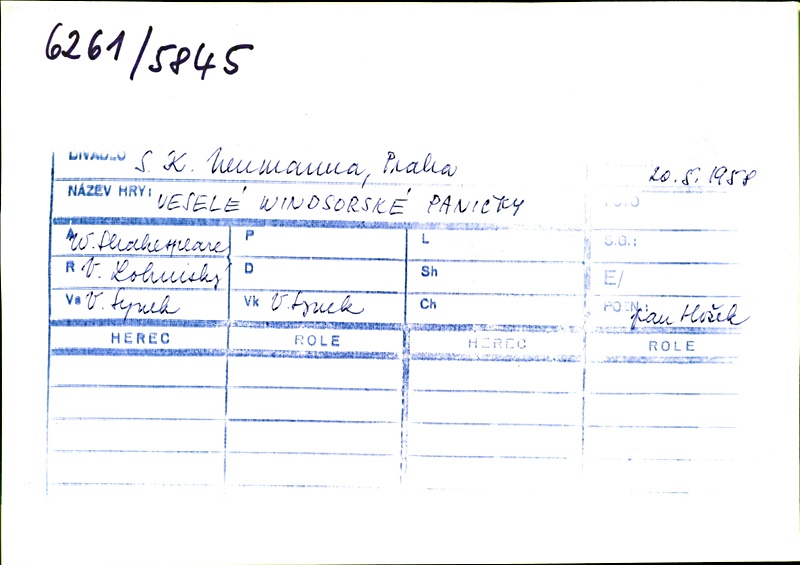 6261/5845
DIVADLO S. K. Neumanna, Praha 20. 5. 1958
NÁZEV HRY: VESELÉ WINDSORSKÉ PANIČKY FOTO
A W. Shakespeare P L S.O.:
R V. D Sh E/
Vs V. Synek Vk V Synek Ch POZN: Jan Hošek
HEREC ROLE HEREC ROLE